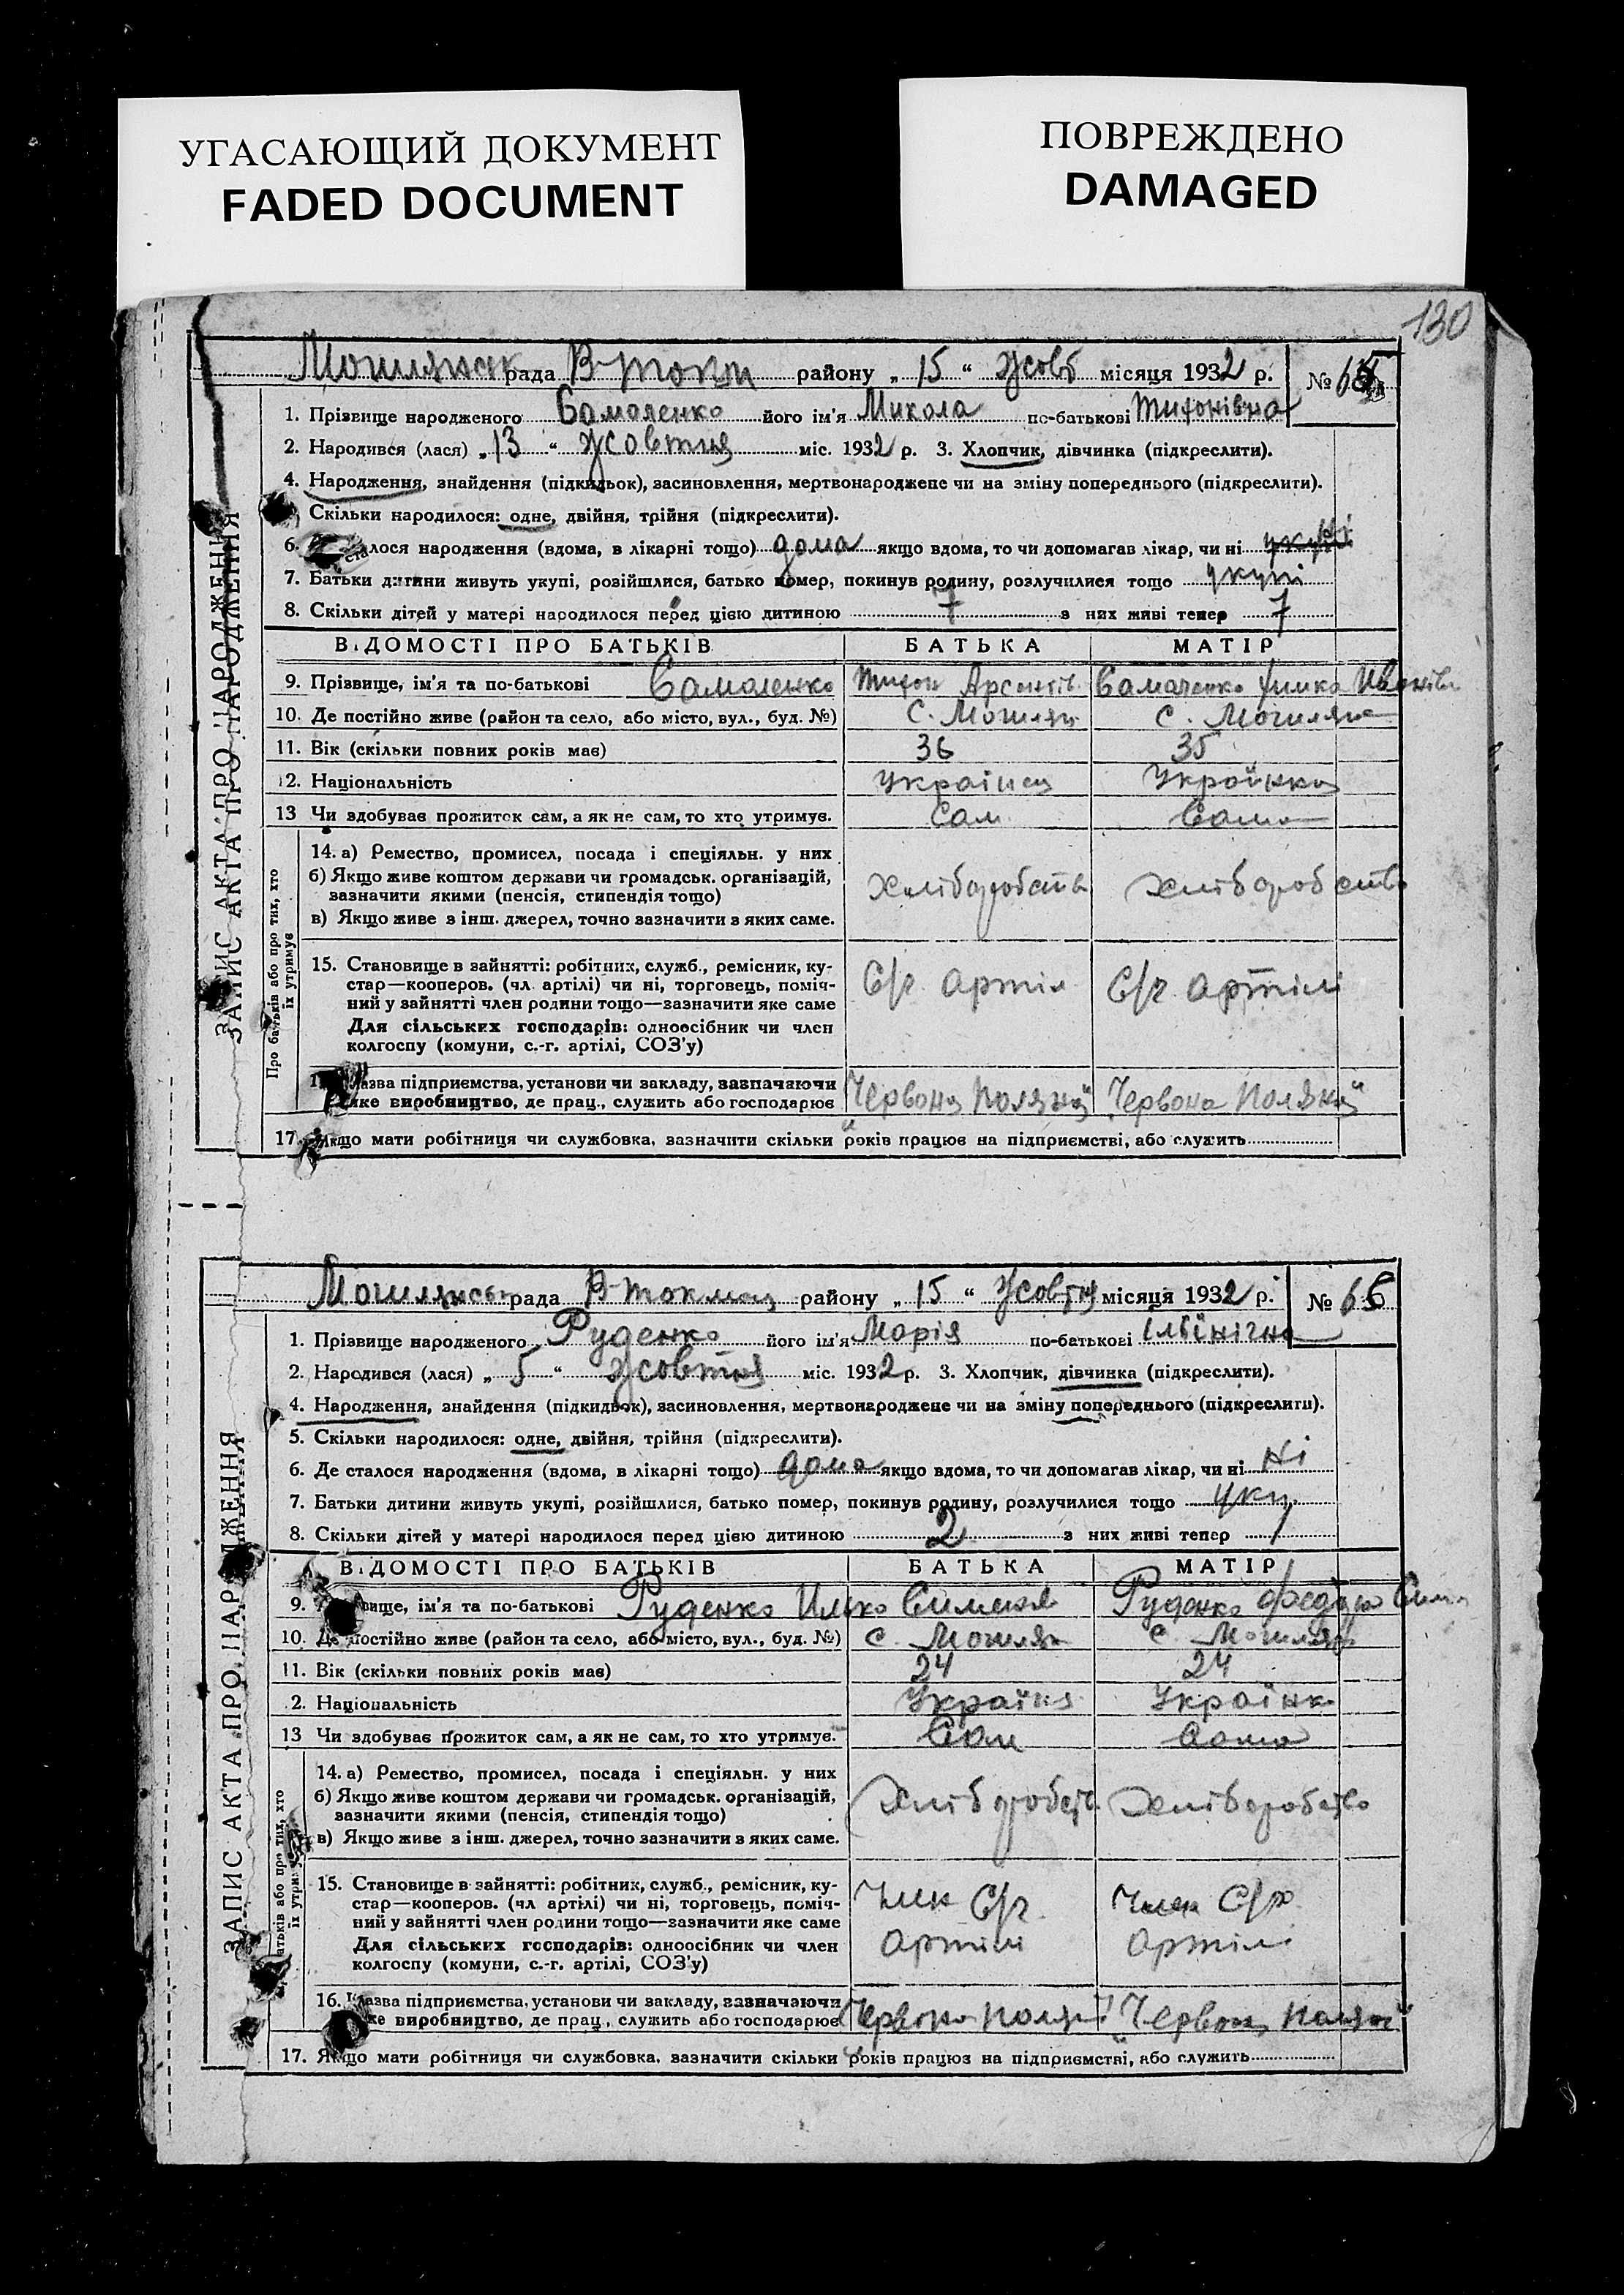 УГАСАЮЩИЙ ДОКУМЕНТ
FADED DOCUMENT
ПОВРЕЖДЕНО
DAMAGED
130
ЗАПИС АКТА ПРО НАРОДЖЕННЯ
рада район у „ 15 “ Жовт місяця 1932 р. №
1. Прізвище народженого Самаленко його ім'я Микола по-батькові Тихонівна
2. Народився (лася) „ 13 “ жовтня міс. 1932 р. 3. Хлопчик, дівчинка (підкреслити).
4. Народження, знайдення (підкидьок), засиновлення, мертвонароджене чи на зміну попереднього (підкреслити).
Скільки народилося: одне, двійня, трійня (підкреслити).
6. сталося народження (вдома, в лікарні тощо) дома якщо вдома, то чи допомагав лікар, чи ні
7. Батьки дитини живуть укупі, розійшлися, батько помер, покинув родину, розлучилися тощо укупі
8. Скільки дітей у матері народилося перед цією дитиною 7 з них живі тепер 7
ВІДОМОСТІ ПРО БАТЬКІВ БАТЬКА МАТІР
9. Прізвище, ім'я та по-батькові Самаленко Тихон Арсентів Самаленко Химка Іванівн
10. Де постійно живе (район та село, або місто, вул., буд. №) с. Могиляни с. Могиляни
11. Вік (скільки повних років має) 36 35
12. Національність Українец Українка
13 Чи здобуває прожиток сам, а як не сам, то хто утримує. Сам Сама
Про батьків або про тих, хто їх утримує
14. а) Ремество, промисел, посада і спеціяльн. у них
б) Якщо живе коштом держави чи громадськ. організацій,
зазначити якими (пенсія, стипендія тощо) хліборобств хліборобство
в) Якщо живе з інш. джерел, точно зазначити з яких саме.
15. Становище в зайнятті: робітник, служб., ремісник, ку-
стар—кооперов. (чл. артілі) чи ні, торговець, поміч- С/г артіл С/г артілі
ний у зайнятті член родини тощо—зазначити яке саме
Для сільських господарів: одноосібник чи член
колгоспу (комуни, с.-г. артілі, СОЗ'у)
Назва підприємства, установи чи закладу, зазначаючи
яке виробництво, де прац., служить або господарює Червона Поляна Червона Поляна
17. Якщо мати робітниця чи службовка, зазначити скільки років працює на підприємстві, або служить
ЗАПИС АКТА ПРО НАРОДЖЕННЯ
рада В-Токмац району „ 15 “ Жовтня місяця 1932 р. № 66
1. Прізвище народженого Руденко його ім'я Марія по-батькові Ільїнічна
2. Народився (лася) „ 5 “ жовтня міс. 1932 р. 3. Хлопчик, дівчинка (підкреслити).
4. Народження, знайдення (підкидьок), засиновлення, мертвонароджене чи на зміну попереднього (підкреслити).
5. Скільки народилося: одне, двійня, трійня (підкреслити).
6. Де сталося народження (вдома, в лікарні тощо) дома якщо вдома, то чи допомагав лікар, чи ні Ні
7. Батьки дитини живуть укупі, розійшлися, батько помер, покинув родину, розлучилися тощо укуп
8. Скільки дітей у матері народилося перед цією дитиною 2 з них живі тепер 1
ВІДОМОСТІ ПРО БАТЬКІВ БАТЬКА МАТІР
9. Прізвище, ім'я та по-батькові Руденко Илько Руденко
10. Де постійно живе (район та село, або місто, вул., буд. №) с. Могилян с. Могиляни
11. Вік (скільки повних років має) 24 24
2. Національність Україн Українк
13 Чи здобуває прожиток сам, а як не сам, то хто утримує. Сам Сама
батьків або про тих, хто їх утримує
14. а) Ремество, промисел, посада і спеціяльн. у них
б) Якщо живе коштом держави чи громадськ. організацій,
зазначити якими (пенсія, стипендія тощо) хліборобств хліборобство
в) Якщо живе з інш. джерел, точно зазначити з яких саме.
15. Становище в зайнятті: робітник, служб., ремісник, ку-
стар—кооперов. (чл артілі) чи ні, торговець, поміч- Член С/г Член С/г
ний у зайнятті член родини тощо—зазначити яке саме
Для сільських господарів: одноосібник чи член артілі артілі
колгоспу (комуни, с.-г. артілі, СОЗ'у)
16. Назва підприємства, установи чи закладу, зазначаючи
яке виробництво, де прац., служить або господарює Червона поляна Червона поляна
17. Якщо мати робітниця чи службовка, зазначити скільки років працює на підприємстві, або служить